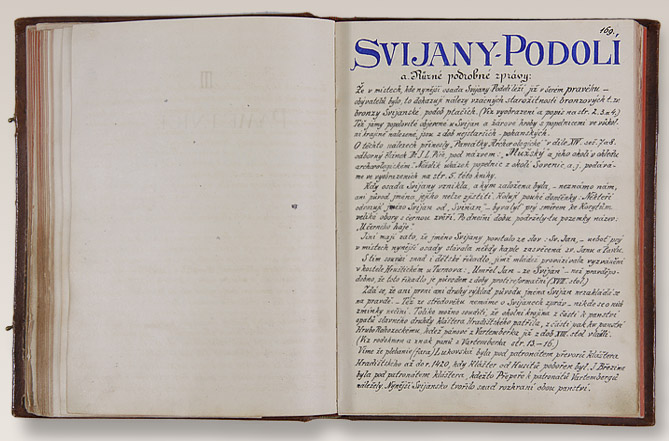 169.
SVIJANY-PODOLÍ
a. Různé podrobné zprávy:
Že v místech, kde nynější osada Svijany Podolí leží, již v šerém pravěku –
obyvatelů bylo, to dokazují nálezy vzácných starožitností bronzových t. zv.
bronzy Svijanské podob ptačích. (Viz vyobrazení a popis na str. 2. 3 a 4.)
Též jámy popelovité objevené u Svijan a bárové hroby s popelnicemi ve vůkol-
ní krajině nalezené, jsou z dob nejstarších – pohanských.
O těchto nálezech přinesly „Památky Archeologické" v díle XV. seš. 7 a 8.
odborný článek Dr. J. L. Píč, pod názvem: „Mužský a jeho okolí v ohledu
archaeologickém". Několik ukázek popelnic z okolí Sovenic a j. podává-
me ve vyobrazeních na str. 5. této knihy.
Kdy osada Svijany vznikla, a kým založena byla, – neznámo nám,
ani původ jména jejího nelze zjistiti. Kolují pouhé domněnky: Někteří
odvozují jméno Svijan od „Sviňan", – bývalyť prý směrem ke
veliké obory s černou zvěří. Po dnešní dobu podržely tu pozemky název:
„U černého háje".
Jiní mají zato, že jméno Svijany povstalo ze slov: Sv. Jan, – neboť prý
v místech nynější osady stávala někdy kaple zasvěcená sv. Janu a Pavlu.
S tím souvisí snad i dětské říkadlo, jímž mládež provázívala vyzvánění
v kostele Hruštickém u Turnova: „Umřel Jan – ze Svijan" – než pravděpo-
dobno, že toto říkadlo je původem z doby protireformační (XVII. stol.)
Zdá se, že ani první ani druhý výklad původu jména Svijan nezakládá se
na pravdě. – Též ze středověku nemáme o Svijanech zpráv – nikde se o nich
zmínky nečiní. Tolik možno souditi, že okolní krajina z části k panství
opatů slavného druhdy kláštera Hradišťského patřila, z části pak ku panství
Hrubo Rohozeckému, kdež pánové z Vartemberka již z dob XIII. stol. vládli.
(Viz rodokmen a znak pánů z Vartemberka str. 13 – 16.)
Víme že plebanie (fara) Lukovská byla pod patronátem převorů kláštera
Hradišťského až do r. 1420, kdy klášter od Husitů pobořen byl. I Březina
byla pod patronátem kláštera, kdežto Přepeře k patronátu Vartembergů
náležely. Nynější Svijansko tvořilo snad rozhraní obou panství.